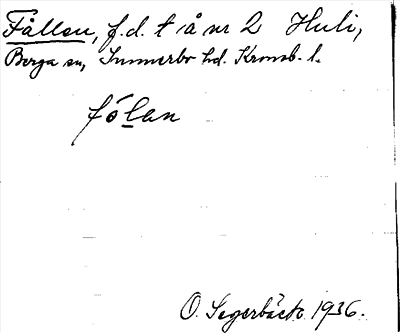 Fållen, f.d. t å nr 2 Huli,
Berga sn, Sunnerbo hd. Kronob. l.
fó̲lan
O. Segerbäck 1936.